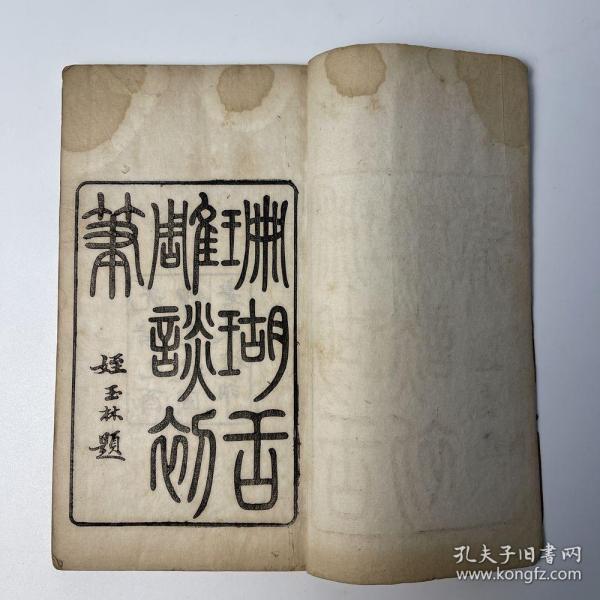 珊瑚舌
雕談初
筆
姪玉林題
孔夫子旧書网
www.kongfz.com